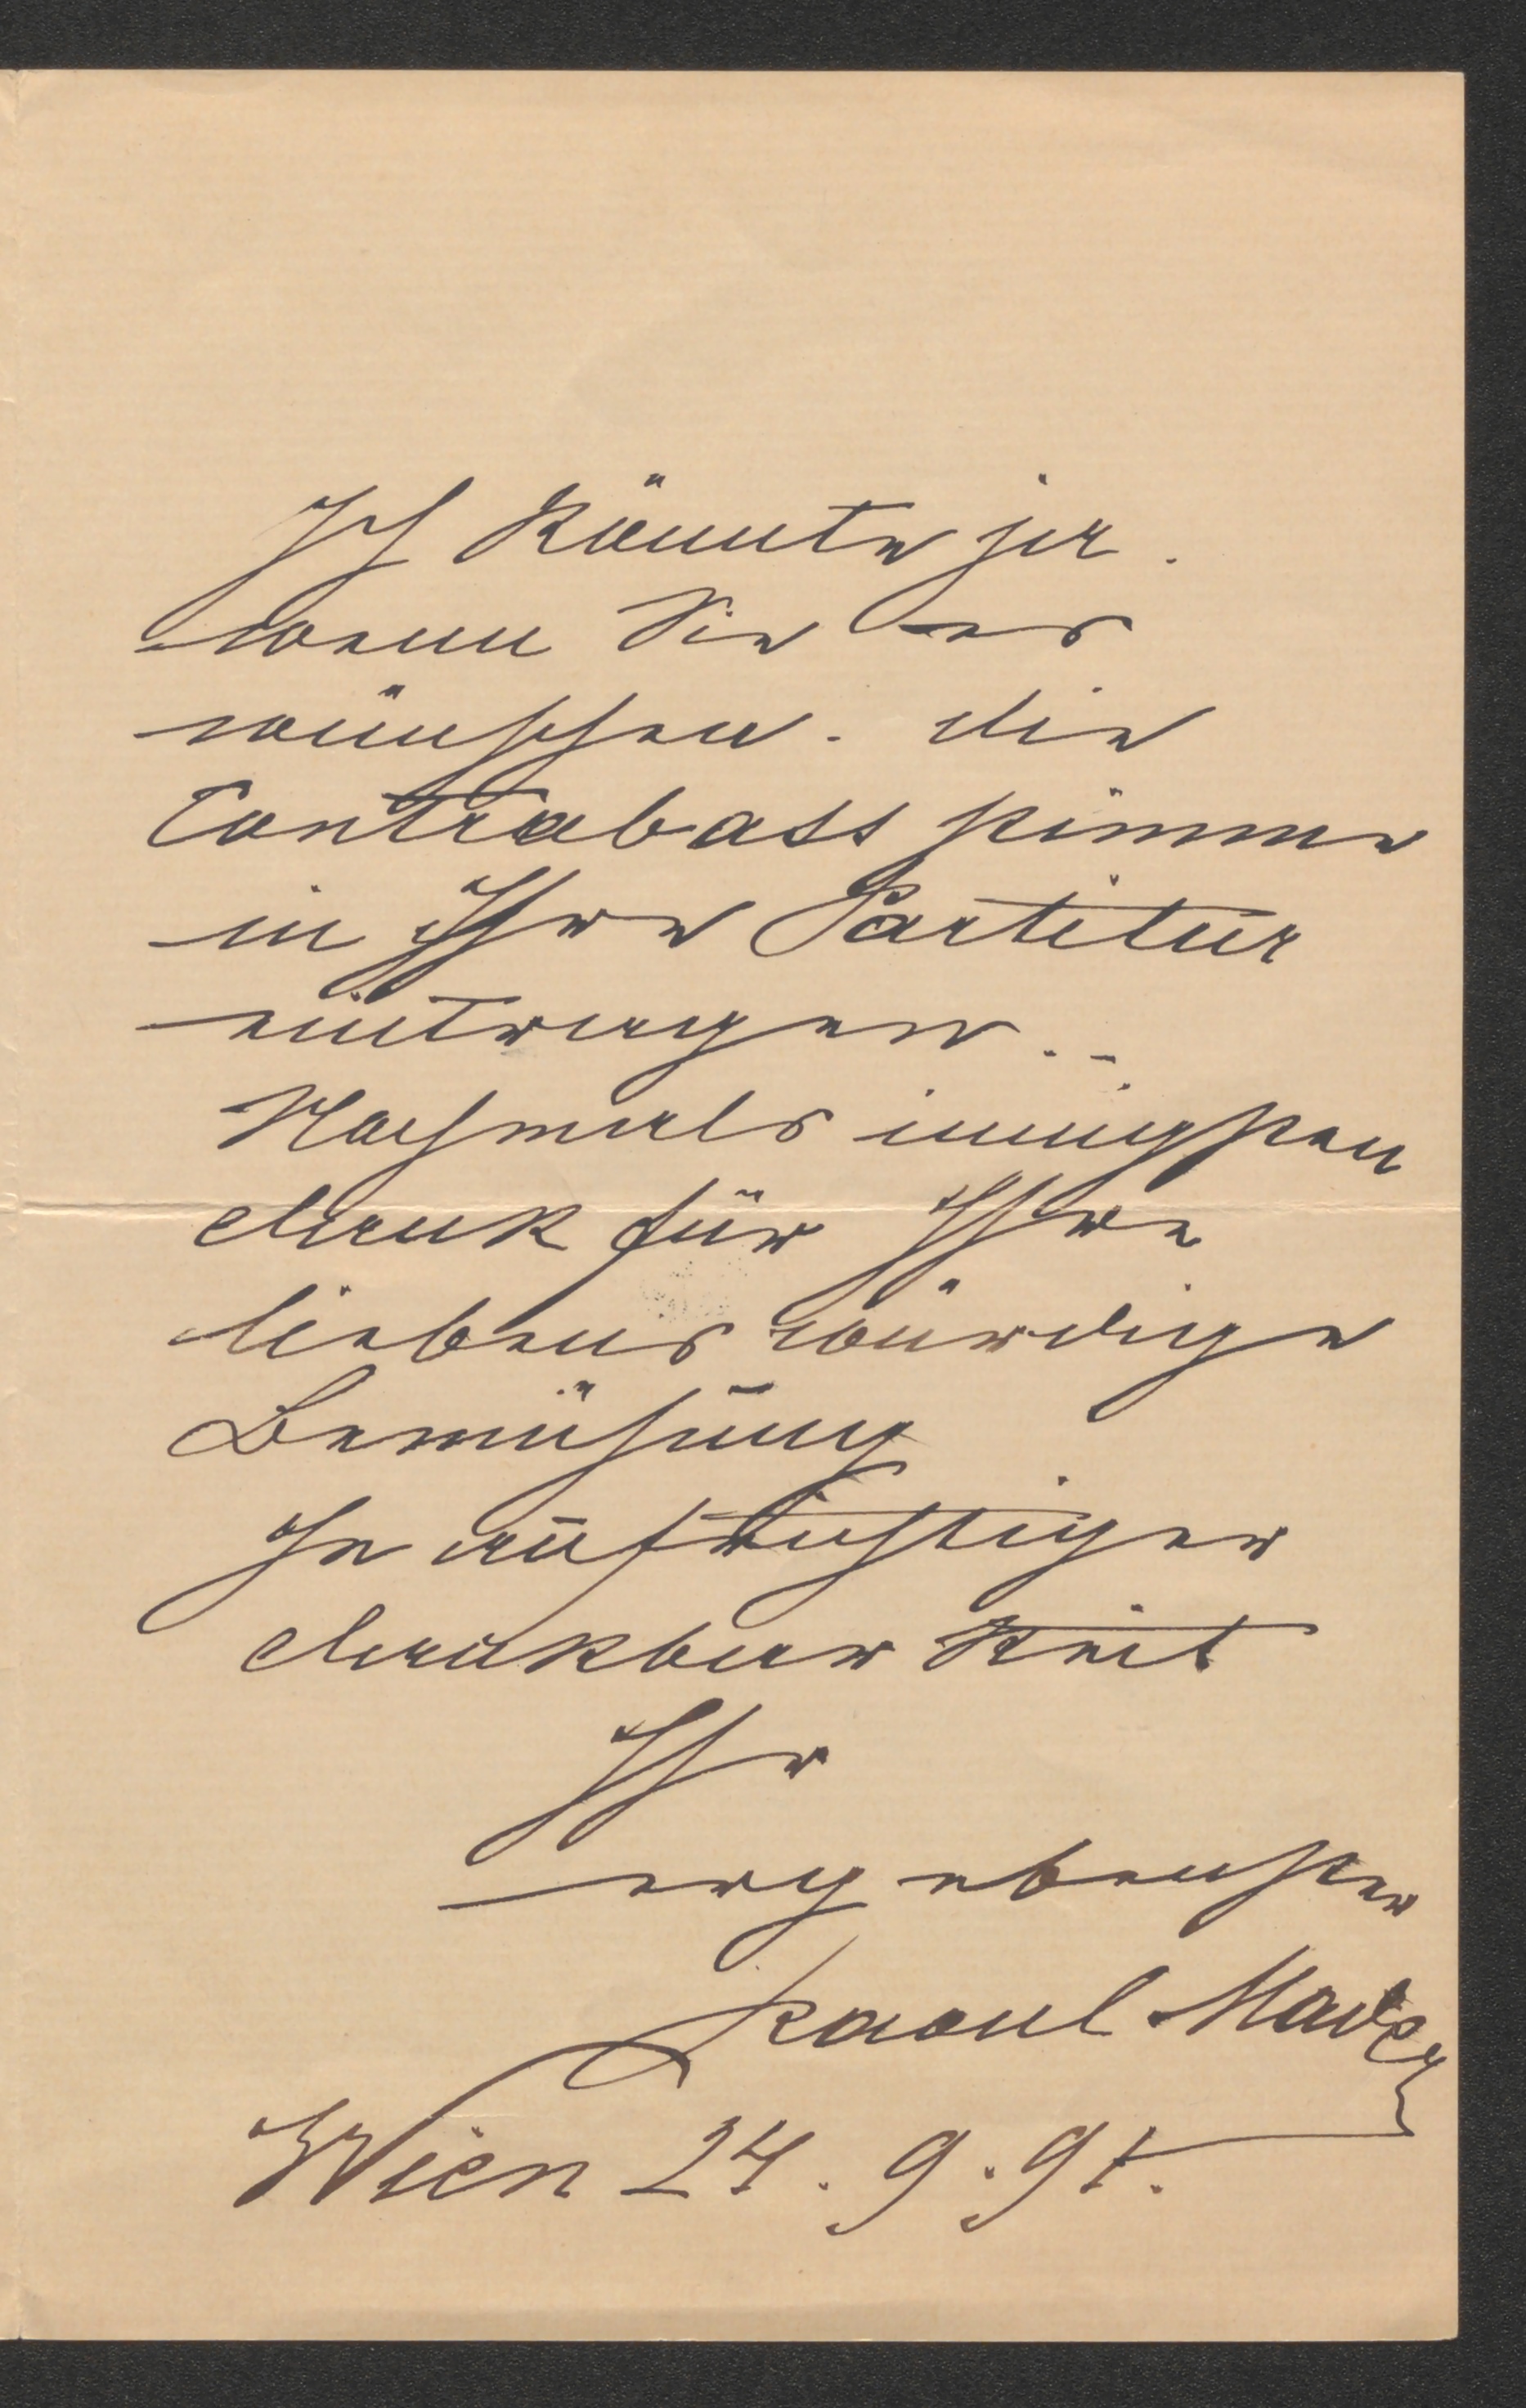 Ich könnte ja.
wenn Sie es
wünschen. die
Contrabassstimme
in Ihre Partitur
eintragen. –.
Nochmals innigsten
dank für Ihre
liebenswürdige
Bemühung
In aufrichtiger
dankbarkeit
Ihr
ergebenster
Raoul Mader
Wien 24. 9. 91.